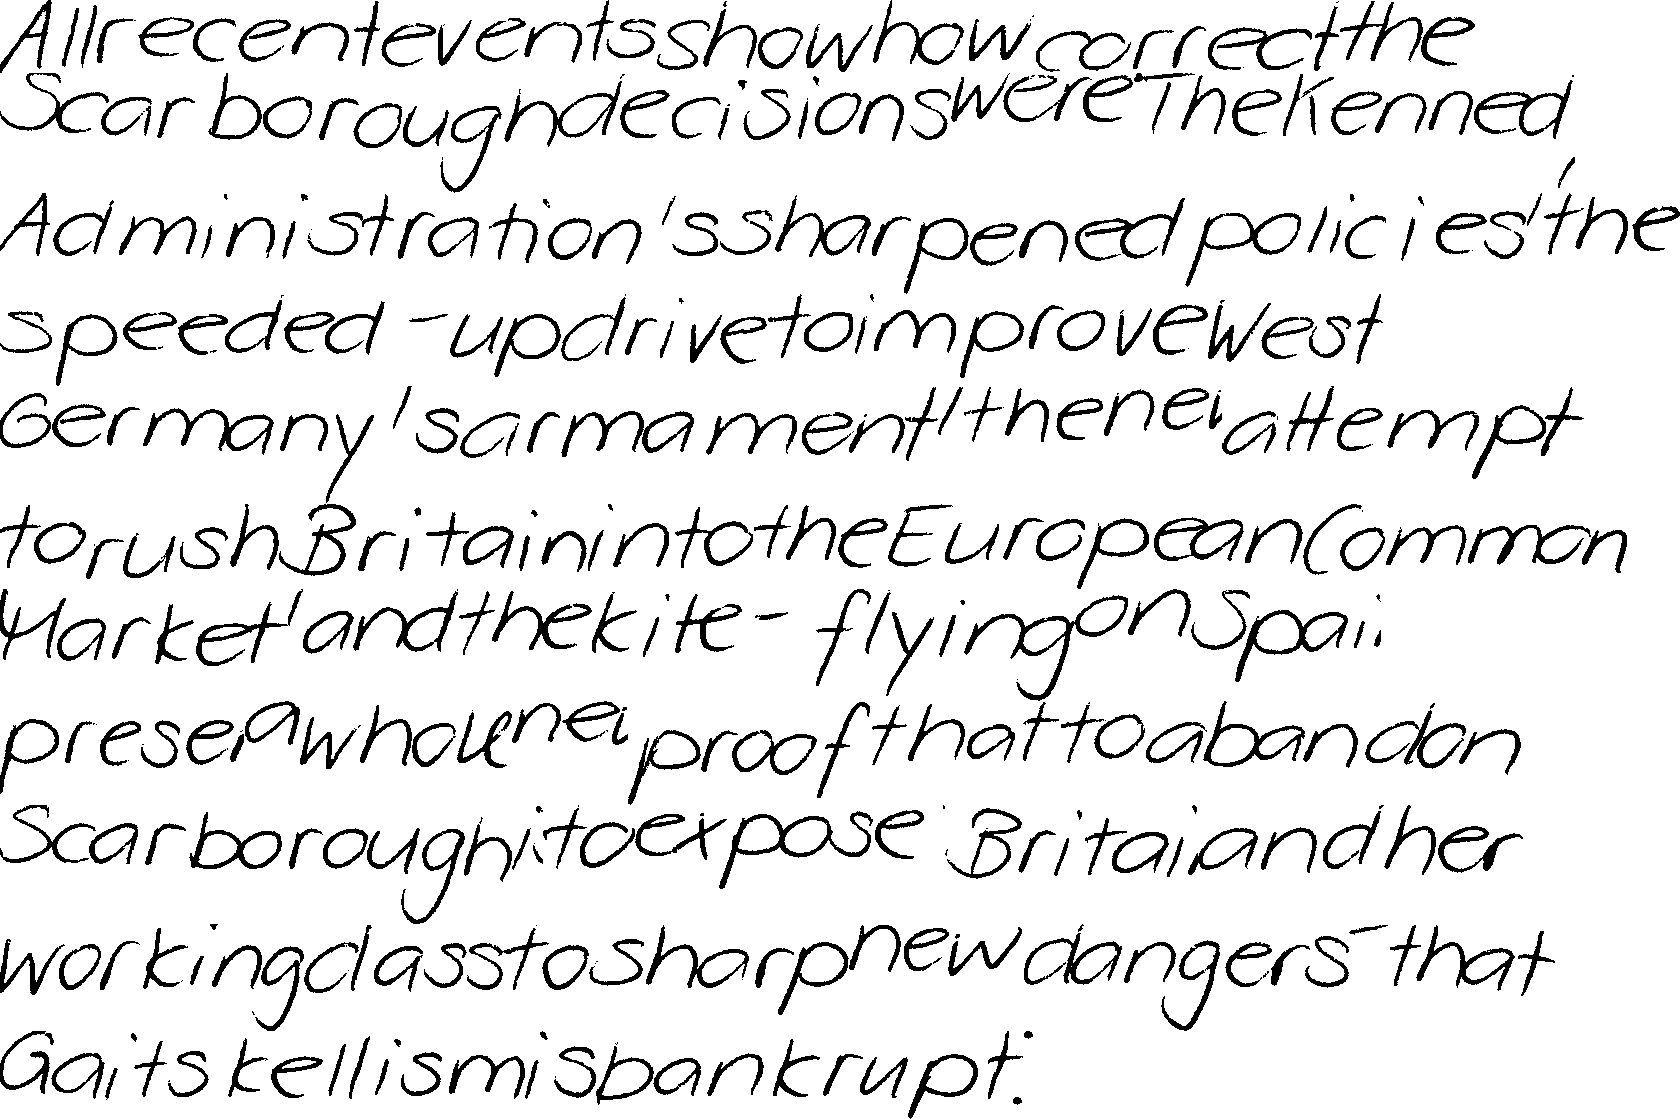 All recent events show how correct the
Scarborough decisions were. The Kenned,
Administration's sharpened policies, the
speeded-up drive to improve West
Germany's armament, the new attempt
to rush Britain into the European Common
Market, and the kite-flying on Spain
present a whole new proof that to abandon
Scarborough is to expose Britain and her
working class to sharp new dangers - that
Gaitskellism is bankrupt.